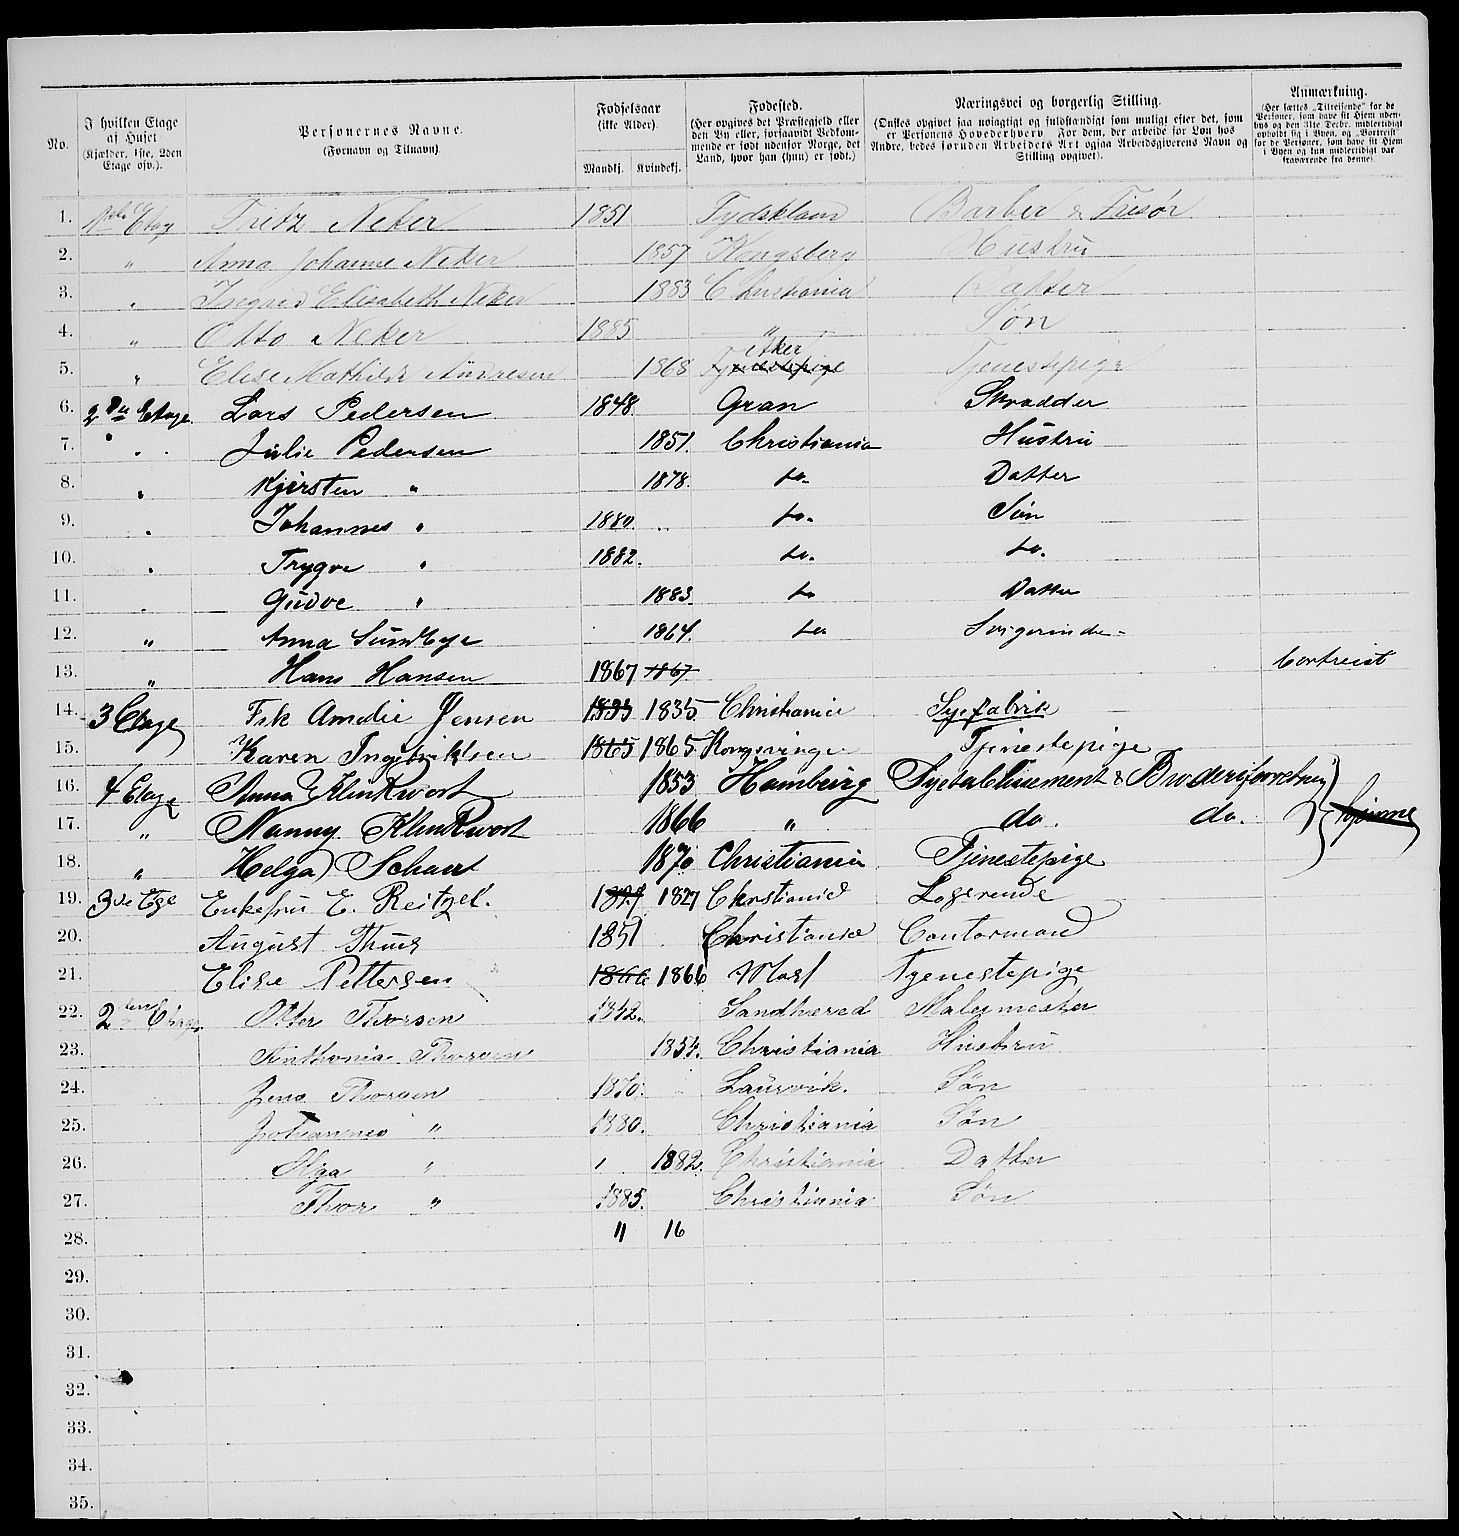 No. I hvilken Etage af Huset (Kjælder, 1ste, 2den Etage osv.). Personernes Navne. (Fornavn og Tilnavn). Fødselsaar (ikke Alder). Mandkj. Kvindekj. Fødested. (Her opgives det Præstegjeld eller den By eller, forsaavidt Vedkommende er født udenfor Norge, det Land, hvor han (hun) er født.) Næringsvei og borgerlig Stilling. (Ønskes opgivet saa nøiagtigt og fuldstændigt som muligt efter det, som er Personens Hovederhverv. For dem, der arbeide for Løn hos Andre, bedes foruden Arbeidets Art ogsaa Arbeidsgiverens Navn og Stilling opgivet). Anmærkning. (Her sættes „Tilreisende" for de Personer, som have sit Hjem udenbys og den 31te Decbr. midlertidigt opholdt sig i Byen, og „Bortreist" for de Personer, som have sit Hjem i Byen og kun midlertidigt var fraværende fra denne)
1. 1ste Etag Fritz Neker 1851 Tydskland Barber & Frisør
2. „ Anna Johanne Neker 1857 Kongsberg Hustru
3. „ Ingrid Elisabeth Neker 1883 Christiania Datter
4. „ Otto Neker 1885 „ Søn
5. „ Elise Mathilde Andresen 1868 Aker Tjenestepige
6. 2den Etage. Lars Pedersen 1848. Gran Skrædder
7. „ Julie Pedersen 1851. Christiania Hustru
8. „ Kjersten „ 1878. do. Datter
9. „ Johannes „ 1880. do. Søn
10. „ Trygve „ 1882. do. do.
11. „ Gudve „ 1883. do Datter
12. „ Anna Sundbye 1864. do Svigerinde
13. „ Hans Hansen 1867 1867 bortreist
14. 3 Etage Frk Amelie Jensen 1835 1835 Christiania Syefabrik
15. Karen Ingebriktsen 1865 1865 Kongsvinger Tjenestepige
16. 4 Etage Anna Klinkwort 1853 Hamburg Syetablisement & Broderiforretning
17. „ Nanny Klinkwort 1866 „ do. do. hjemme
18. „ Helga Schant 1870 Christiania Tjenestepige
19. 3de Etge Enkefru E. Reitzel. 1827 1827 Christiania Logerende
20. August Thus 1851 Christiania Contormand
21. Elise Pettersen 1866 1866 Moss Tjenestepige
22. 2den Etage. Otter Thorsen 1842. Sandhered Malermester
23. Anthonia Thorsen 1854. Christiania Hustru
24. Jens Thorsen 1870. Laurvik. Søn
25. Johannes „ 1880. Christiania Søn
26. Olga „ 1882. Christiania Datter
27. Thor „ 1885. Christiania Søn
28. 11 16
29.
30.
31.
32.
33.
34.
35.